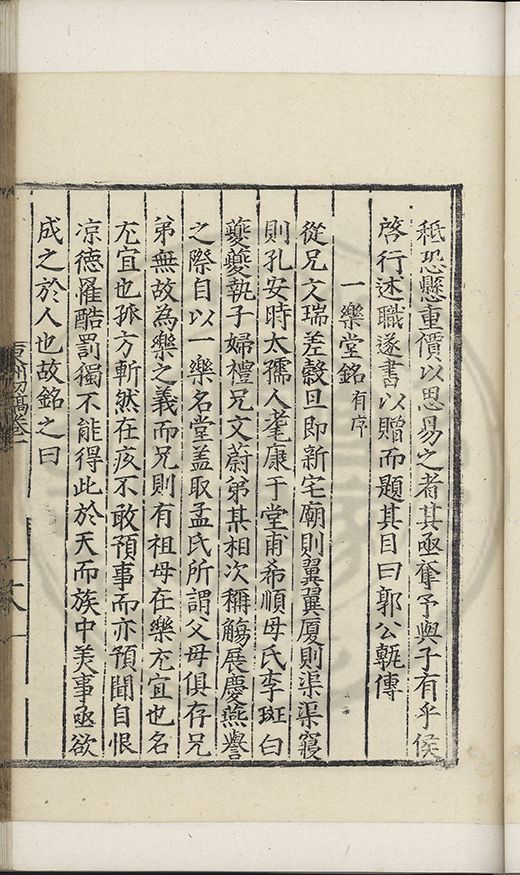 秪恐懸重價以思易之者其亟奪予與子有乎侯
啓行述職遂書以贈而題其目曰郭公甎傳
一樂堂銘有序
從兄文瑞差穀旦即新宅廟則翼翼厦則渠渠寢
則孔安時太孺人耄康于堂甫希順母氏李斑白
夔夔執子婦禮兄文蔚弟某相次稱觴展慶燕譽
之際自以一樂名堂盖取孟氏所謂父母俱存兄
弟無故為樂之義而兄則有祖母在樂尤宜也名
尤宜也孤方斬然在疚不敢預事而亦預聞自恨
凉德罹酷罰獨不能得此於天而族中美事亟欲
成之於人也故銘之曰